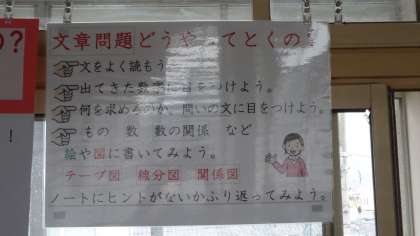 文章問題どうやってとくの
文をよく読もう
出てきた数字に目をつけよう。
何を求めるのか、問いの文に目をつけよう。
もの 数 数の関係 など
絵や図に書いてみよう。
テープ図 線分図 関係図
ノートにヒントがないかふり返ってみよう。
?
!